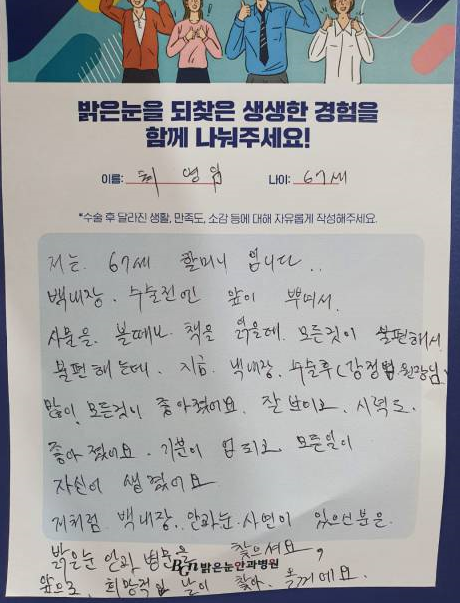 밝은눈을 되찾은 생생한 경험을
함께 나눠주세요!
이름: 최영임 나이: 67세
*수술 후 달라진 생활, 만족도, 소감 등에 대해 자유롭게 작성해주세요.
저는. 67세 할머니 입니다..
백내장. 수술전엔 앞이 뿌여서.
사문을. 볼때나. 책을 읽을데. 모든것이 불편해서
불편해는데. 지금. 백내장. 수술후(강정범 원장님)
많이. 모든것이 좋아졌어요. 잘 보이고. 시력도.
좋아졌어요. 기분이 업되고. 모든일이
자신이 생겼어요
저처럼. 백내장. 안과눈. 사연이 있으신분은.
밝은눈 안과 병문을 찾으셔요,
BGN 밝은눈안과병원
앞으로, 희망적인 날이 찾아. 올꺼예요.